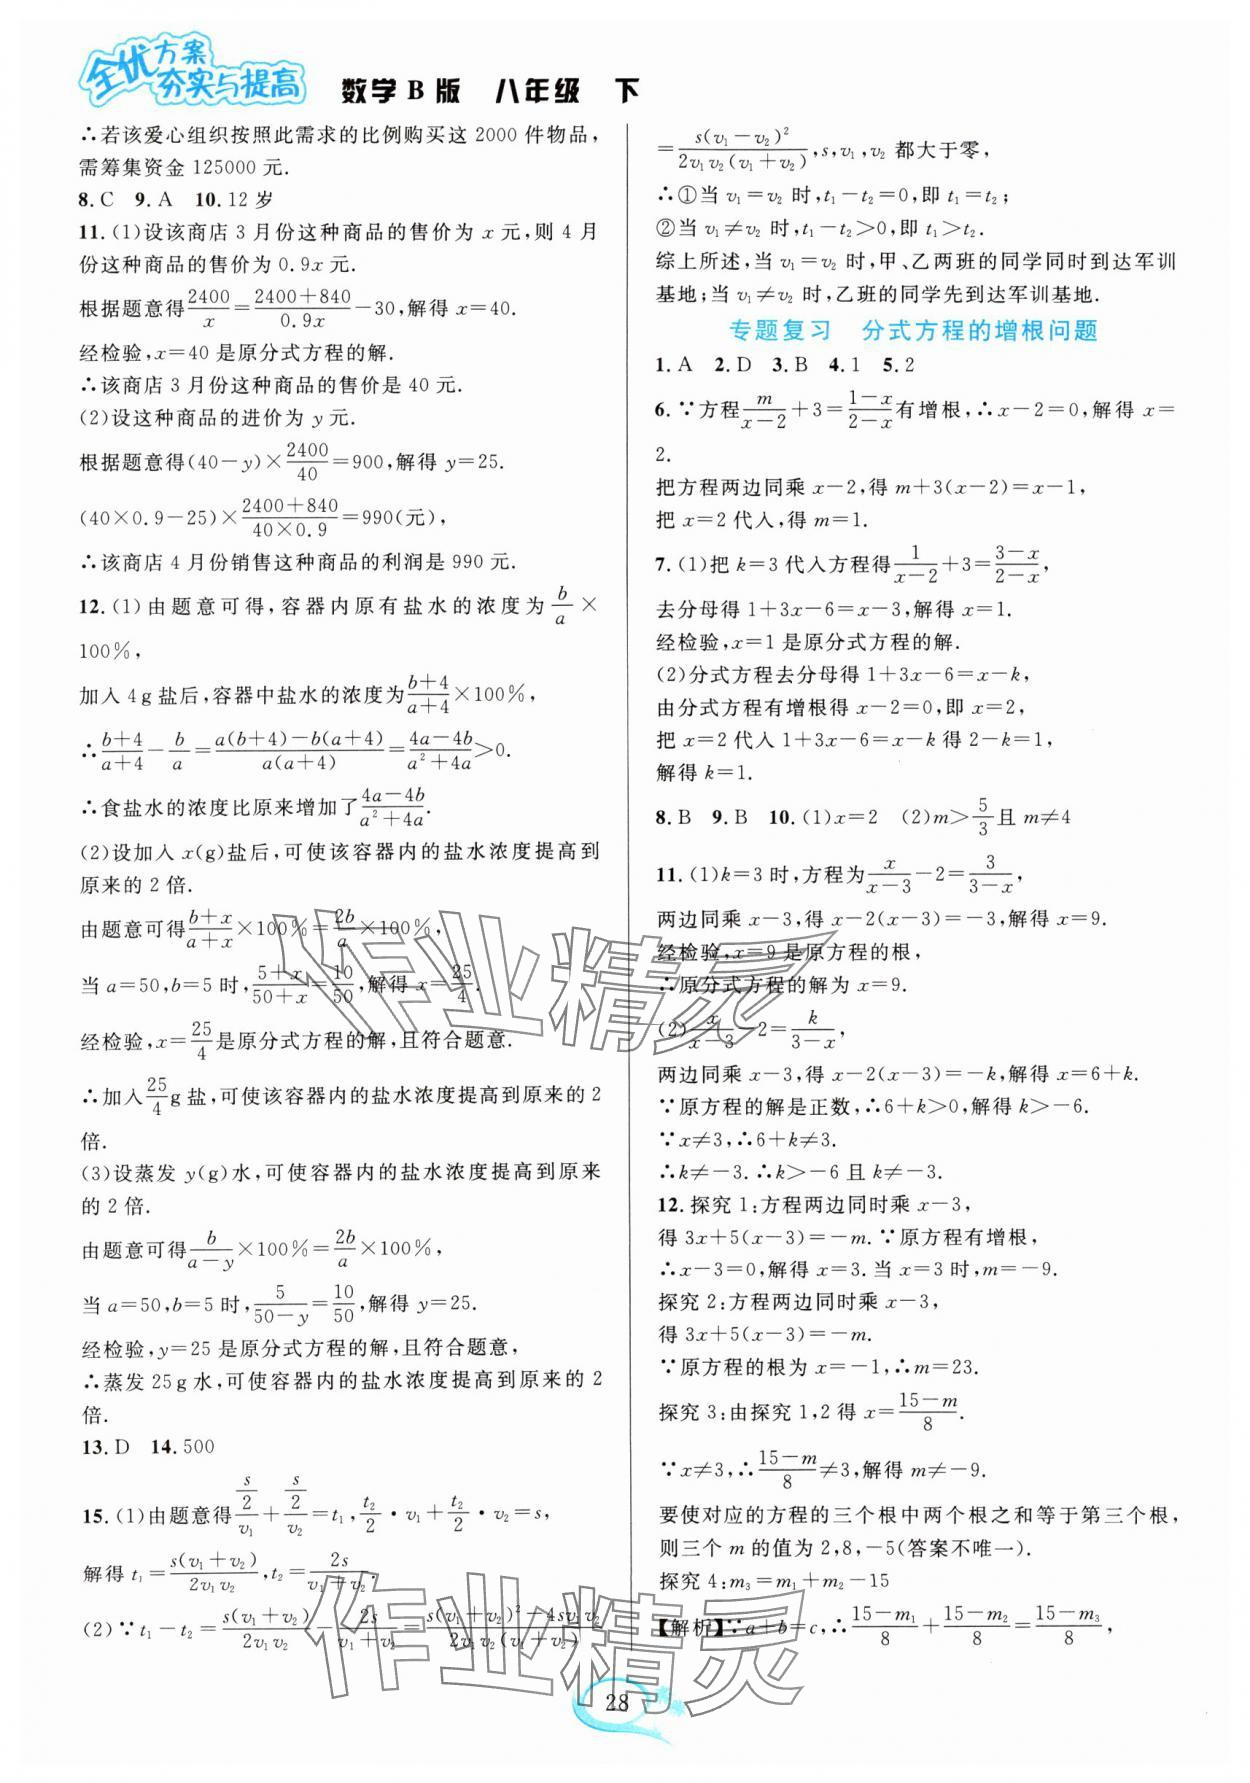 全优方案
夯实与提高
数学B版 八年级 下
∴若该爱心组织按照此需求的比例购买这 2000 件物品,
需筹集资金 125000 元.
8.C 9.A 10.12 岁
11.(1)设该商店 3 月份这种商品的售价为 x 元,则 4 月
份这种商品的售价为 0.9x 元.
根据题意得2400/x=(2400+840)/0.9x-30,解得 x=40.
经检验,x=40 是原分式方程的解.
∴该商店 3 月份这种商品的售价是 40 元.
(2)设这种商品的进价为 y 元.
根据题意得(40-y)×2400/40=900,解得 y=25.
(40×0.9-25)×(2400+840)/(40×0.9)=990(元),
∴该商店 4 月份销售这种商品的利润是 990 元.
12.(1)由题意可得,容器内原有盐水的浓度为 b/a ×
100%,
加入 4g 盐后,容器中盐水的浓度为(b+4)/(a+4)×100%,
∴(b+4)/(a+4)-b/a=(a(b+4)-b(a+4))/(a(a+4))=(4a-4b)/(a²+4a)>0.
∴食盐水的浓度比原来增加了(4a-4b)/(a²+4a).
(2)设加入 x(g)盐后,可使该容器内的盐水浓度提高到
原来的 2 倍.
由题意可得(b+x)/(a+x)×100%=2b/a×100%,
当 a=50,b=5 时,(5+x)/(50+x)=10/50,解得 x=25/4.
经检验,x=25/4是原分式方程的解,且符合题意.
∴加入25/4g 盐,可使该容器内的盐水浓度提高到原来的 2
倍.
(3)设蒸发 y(g)水,可使容器内的盐水浓度提高到原来
的 2 倍.
由题意可得b/(a-y)×100%=2b/a×100%,
当 a=50,b=5 时,5/(50-y)=10/50,解得 y=25.
经检验,y=25 是原分式方程的解,且符合题意,
∴蒸发 25g 水,可使容器内的盐水浓度提高到原来的 2
倍.
13.D 14.500
15.(1)由题意得(s/2)/v₁+(s/2)/v₂=t₁,t₂/2·v₁+t₂/2·v₂=s,
解得 t₁=s(v₁+v₂)/2v₁v₂,t₂=2s/(v₁+v₂).
(2)∵t₁-t₂=s(v₁+v₂)/2v₁v₂-2s/(v₁+v₂)=(s(v₁+v₂)²-4sv₁v₂)/(2v₁v₂(v₁+v₂))
=s(v₁-v₂)²/(2v₁v₂(v₁+v₂)),s,v₁,v₂ 都大于零,
∴①当 v₁=v₂ 时,t₁-t₂=0,即 t₁=t₂;
②当 v₁≠v₂ 时,t₁-t₂>0,即 t₁>t₂.
综上所述,当 v₁=v₂ 时,甲、乙两班的同学同时到达军训
基地;当 v₁≠v₂ 时,乙班的同学先到达军训基地.
专题复习 分式方程的增根问题
1.A 2.D 3.B 4.1 5.2
6.∵方程m/(x-2)+3=(1-x)/(2-x)有增根,∴x-2=0,解得 x=
2.
把方程两边同乘 x-2,得 m+3(x-2)=x-1,
把 x=2 代入,得 m=1.
7.(1)把 k=3 代入方程得1/(x-2)+3=(3-x)/(2-x),
去分母得 1+3x-6=x-3,解得 x=1.
经检验,x=1 是原分式方程的解.
(2)分式方程去分母得 1+3x-6=x-k,
由分式方程有增根得 x-2=0,即 x=2,
把 x=2 代入 1+3x-6=x-k 得 2-k=1,
解得 k=1.
8.B 9.B 10.(1)x=2 (2)m>5/3且 m≠4
11.(1)k=3 时,方程为x/(x-3)-2=3/(3-x),
两边同乘 x-3,得 x-2(x-3)=-3,解得 x=9.
经检验,x=9 是原方程的根,
∴原分式方程的解为 x=9.
(2)x/(x-3)-2=k/(3-x),
两边同乘 x-3,得 x-2(x-3)=-k,解得 x=6+k.
∵原方程的解是正数,∴6+k>0,解得 k>-6.
∵x≠3,∴6+k≠3.
∴k≠-3.∴k>-6 且 k≠-3.
12.探究 1:方程两边同时乘 x-3,
得 3x+5(x-3)=-m.∵原方程有增根,
∴x-3=0,解得 x=3.当 x=3 时,m=-9.
探究 2:方程两边同时乘 x-3,
得 3x+5(x-3)=-m.
∵原方程的根为 x=-1,∴m=23.
探究 3:由探究 1,2 得 x=(15-m)/8.
∵x≠3,∴(15-m)/8≠3,解得 m≠-9.
要使对应的方程的三个根中两个根之和等于第三个根,
则三个 m 的值为 2,8,-5(答案不唯一).
探究 4:m₃=m₁+m₂-15
【解析】∵a+b=c,∴(15-m₁)/8+(15-m₂)/8=(15-m₃)/8,
28
作业精灵
作业精灵